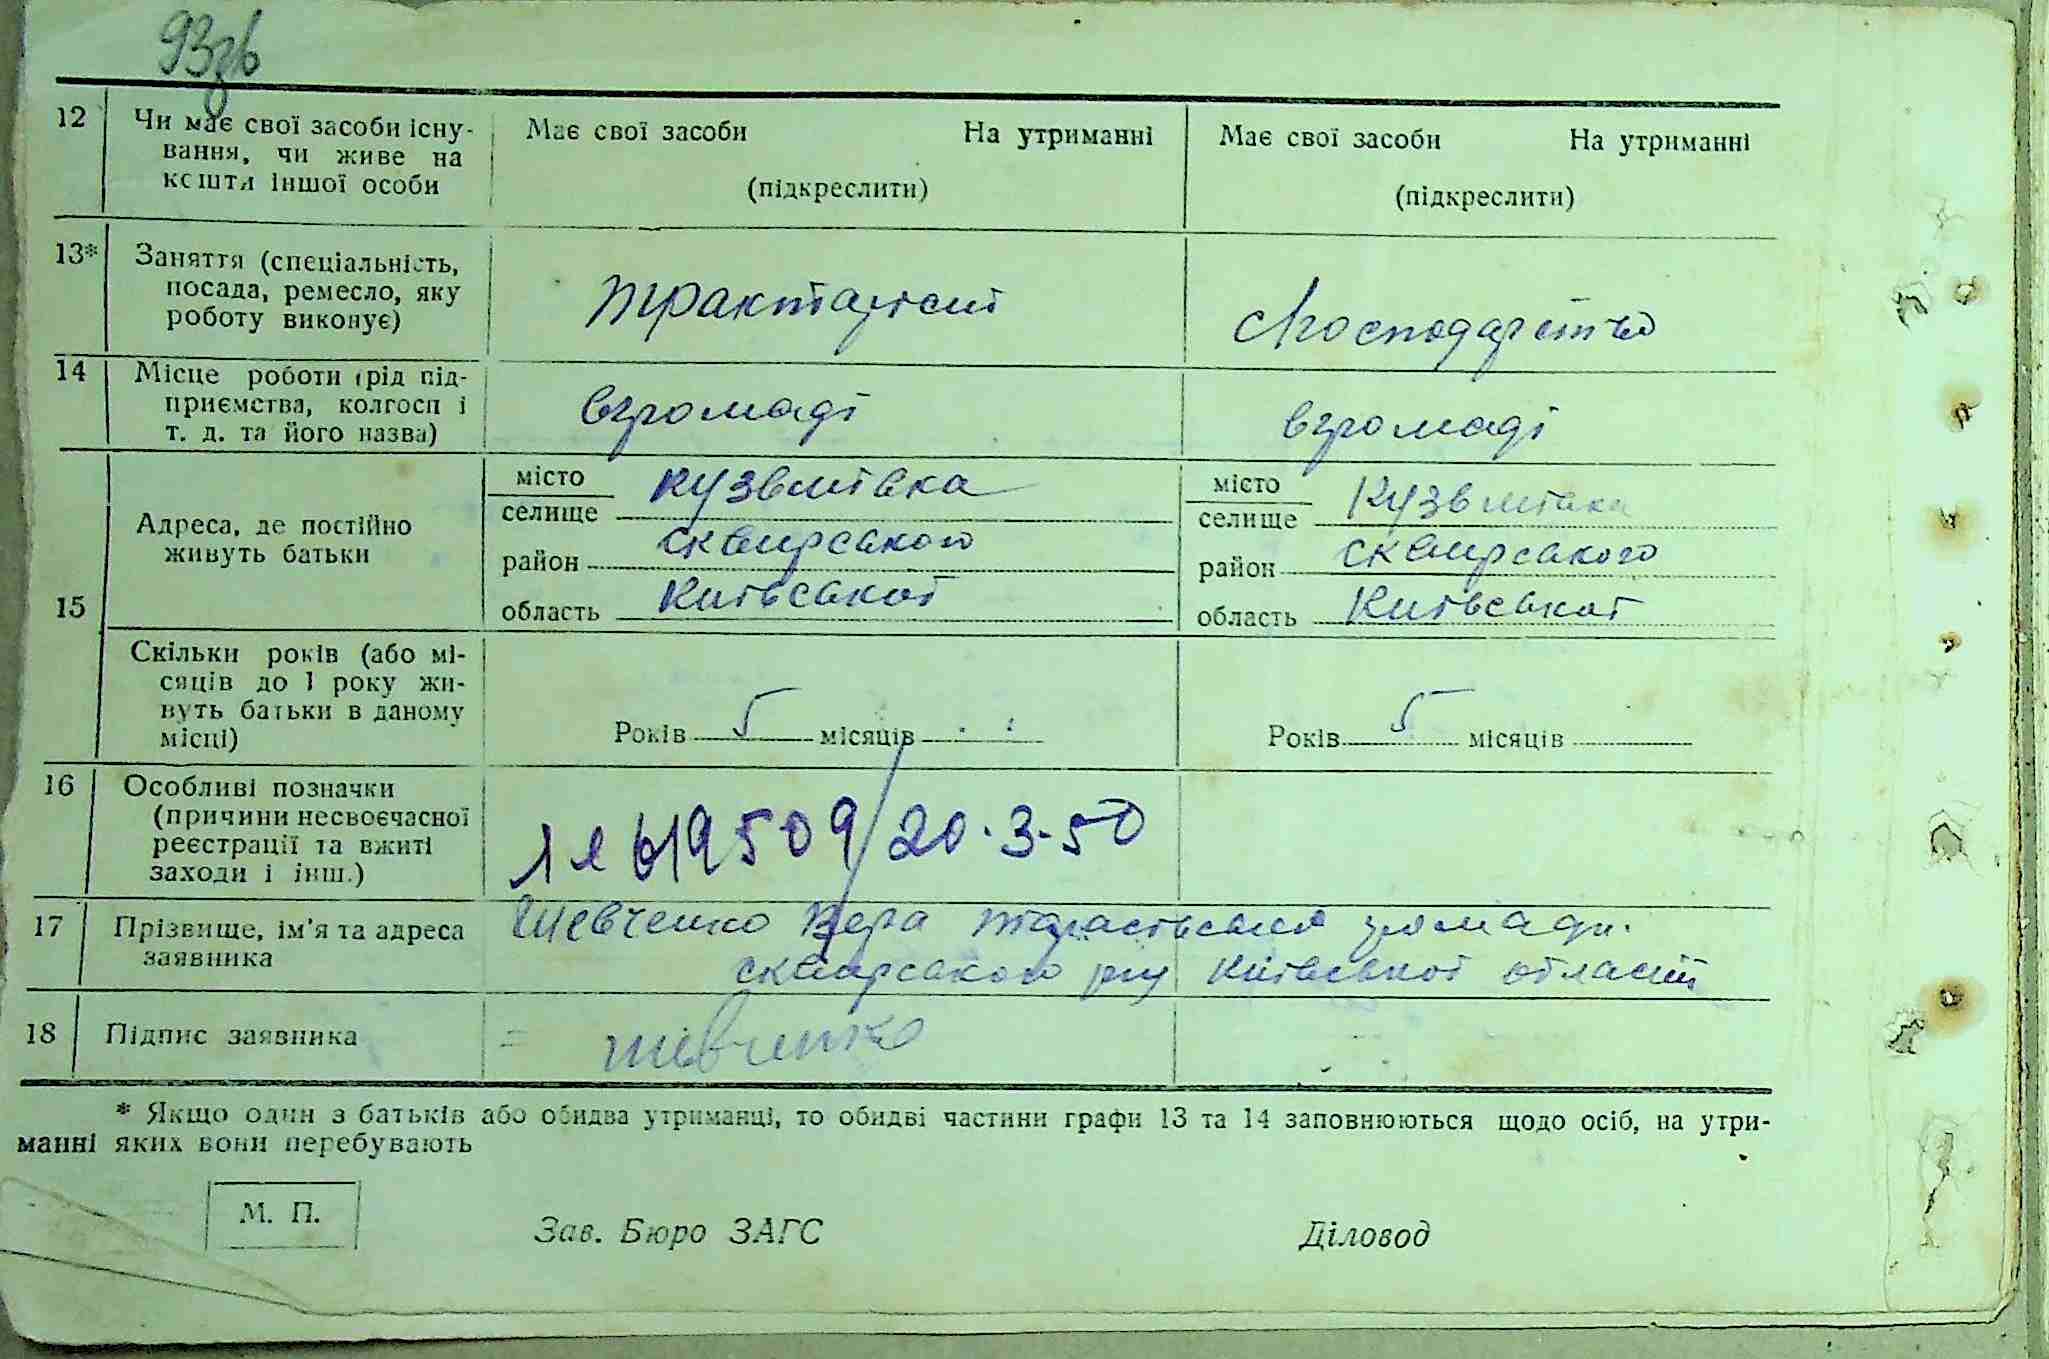 93зв
12 Чи має свої засоби існу- Має свої засоби На утриманні Має свої засоби На утриманні
вання, чи живе на
кошти іншої особи (підкреслити) (підкреслити)
13* Заняття (спеціальність,
посада, ремесло, яку трактарист Господарство
роботу виконує)
14 Місце роботи (рід під-
приємства, колгосп і вгромаді вгромаді
т. д. та його назва)
місто Кузьмівка місто Кузьмівка
Адреса, де постійно селище селище
живуть батьки район сквирського район сквирського
15 область Київської область Київської
Скільки років (або мі-
сяців до 1 року жи-
вуть батьки в даному Років 5 місяців Років 5 місяців
місці)
16 Особливі позначки
(причини несвоєчасної
реєстрації та вжиті 619509/20.3.50
заходи і інш.)
17 Прізвище, ім'я та адреса Шевченко Вера громади.
заявника сквирського р-ну Київської області
18 Підпис заявника Шевченко
* Якщо один з батьків або обидва утриманці, то обидві частини графи 13 та 14 заповнюються щодо осіб, на утри-
манні яких вони перебувають
М. П. Зав. Бюро ЗАГС Діловод